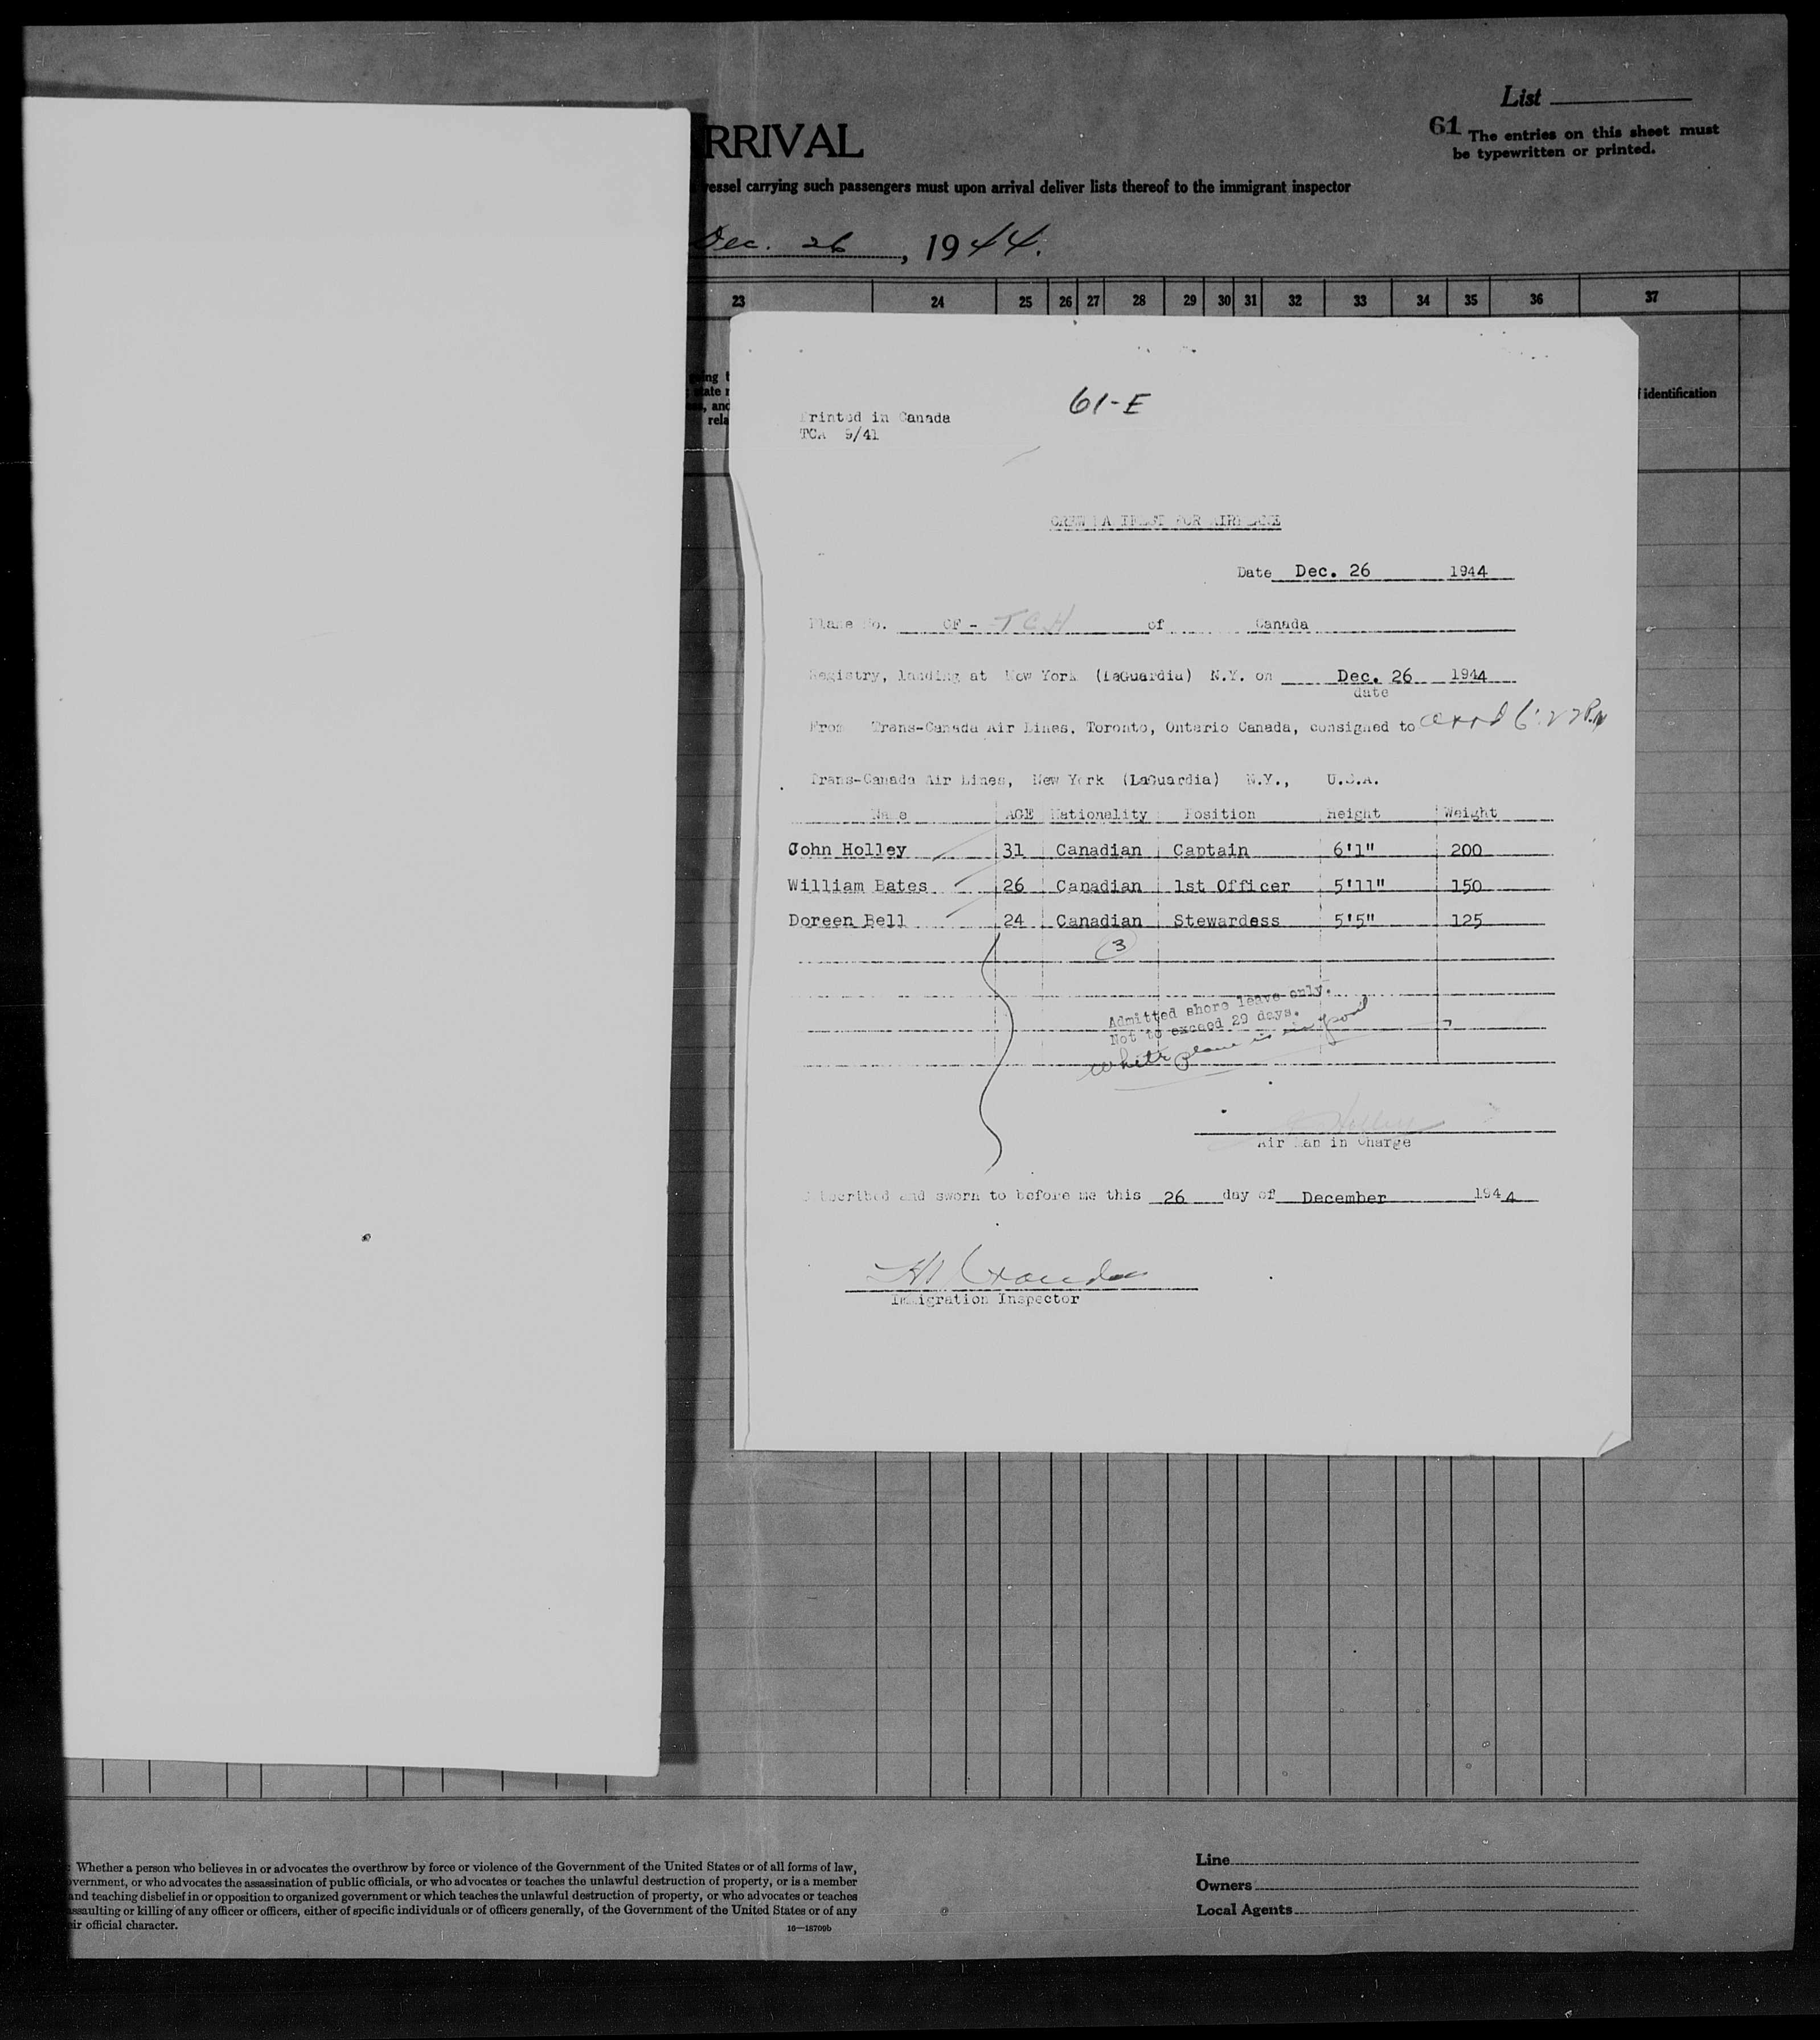 List
61 The entries on this sheet must
be typewritten or printed.
RRIVAL
vessel carrying such passengers must upon arrival deliver lists thereof to the immigrant inspector
Dec. 26, 1944.
23 24 25 26 27 28 29 30 31 32 33 34 35 36 37
identification
rela
61-E
Printed in Canada
TCA 9/41
CREW MANIFEST FOR AIRPLANE
Date Dec. 26 1944
Plane No. CF-TCH of Canada
Registry, landing at New York (LaGuardia) N.Y. on Dec. 26 1944
date
From Trans-Canada Air Lines, Toronto, Ontario Canada, consigned to
Trans-Canada Air Lines, New York (LaGuardia) N.Y., U.S.A.
Name AGE Nationality Position Height Weight
John Holley 31 Canadian Captain 6'1" 200
William Bates 26 Canadian 1st Officer 5'11" 150
Doreen Bell 24 Canadian Stewardess 5'5" 125
3
Admitted shore leave only.
Not to exceed 29 days.
while plane is in port
Holley
Air Man in Charge
Subscribed and sworn to before me this 26 day of December 1944
Immigration Inspector
Whether a person who believes in or advocates the overthrow by force or violence of the Government of the United States or of all forms of law,
vernment, or who advocates the assassination of public officials, or who advocates or teaches the unlawful destruction of property, or is a member
and teaching disbelief in or opposition to organized government or which teaches the unlawful destruction of property, or who advocates or teaches
ssaulting or killing of any officer or officers, either of specific individuals or of officers generally, of the Government of the United States or of any
ir official character.
16—18709b
Line
Owners
Local Agents